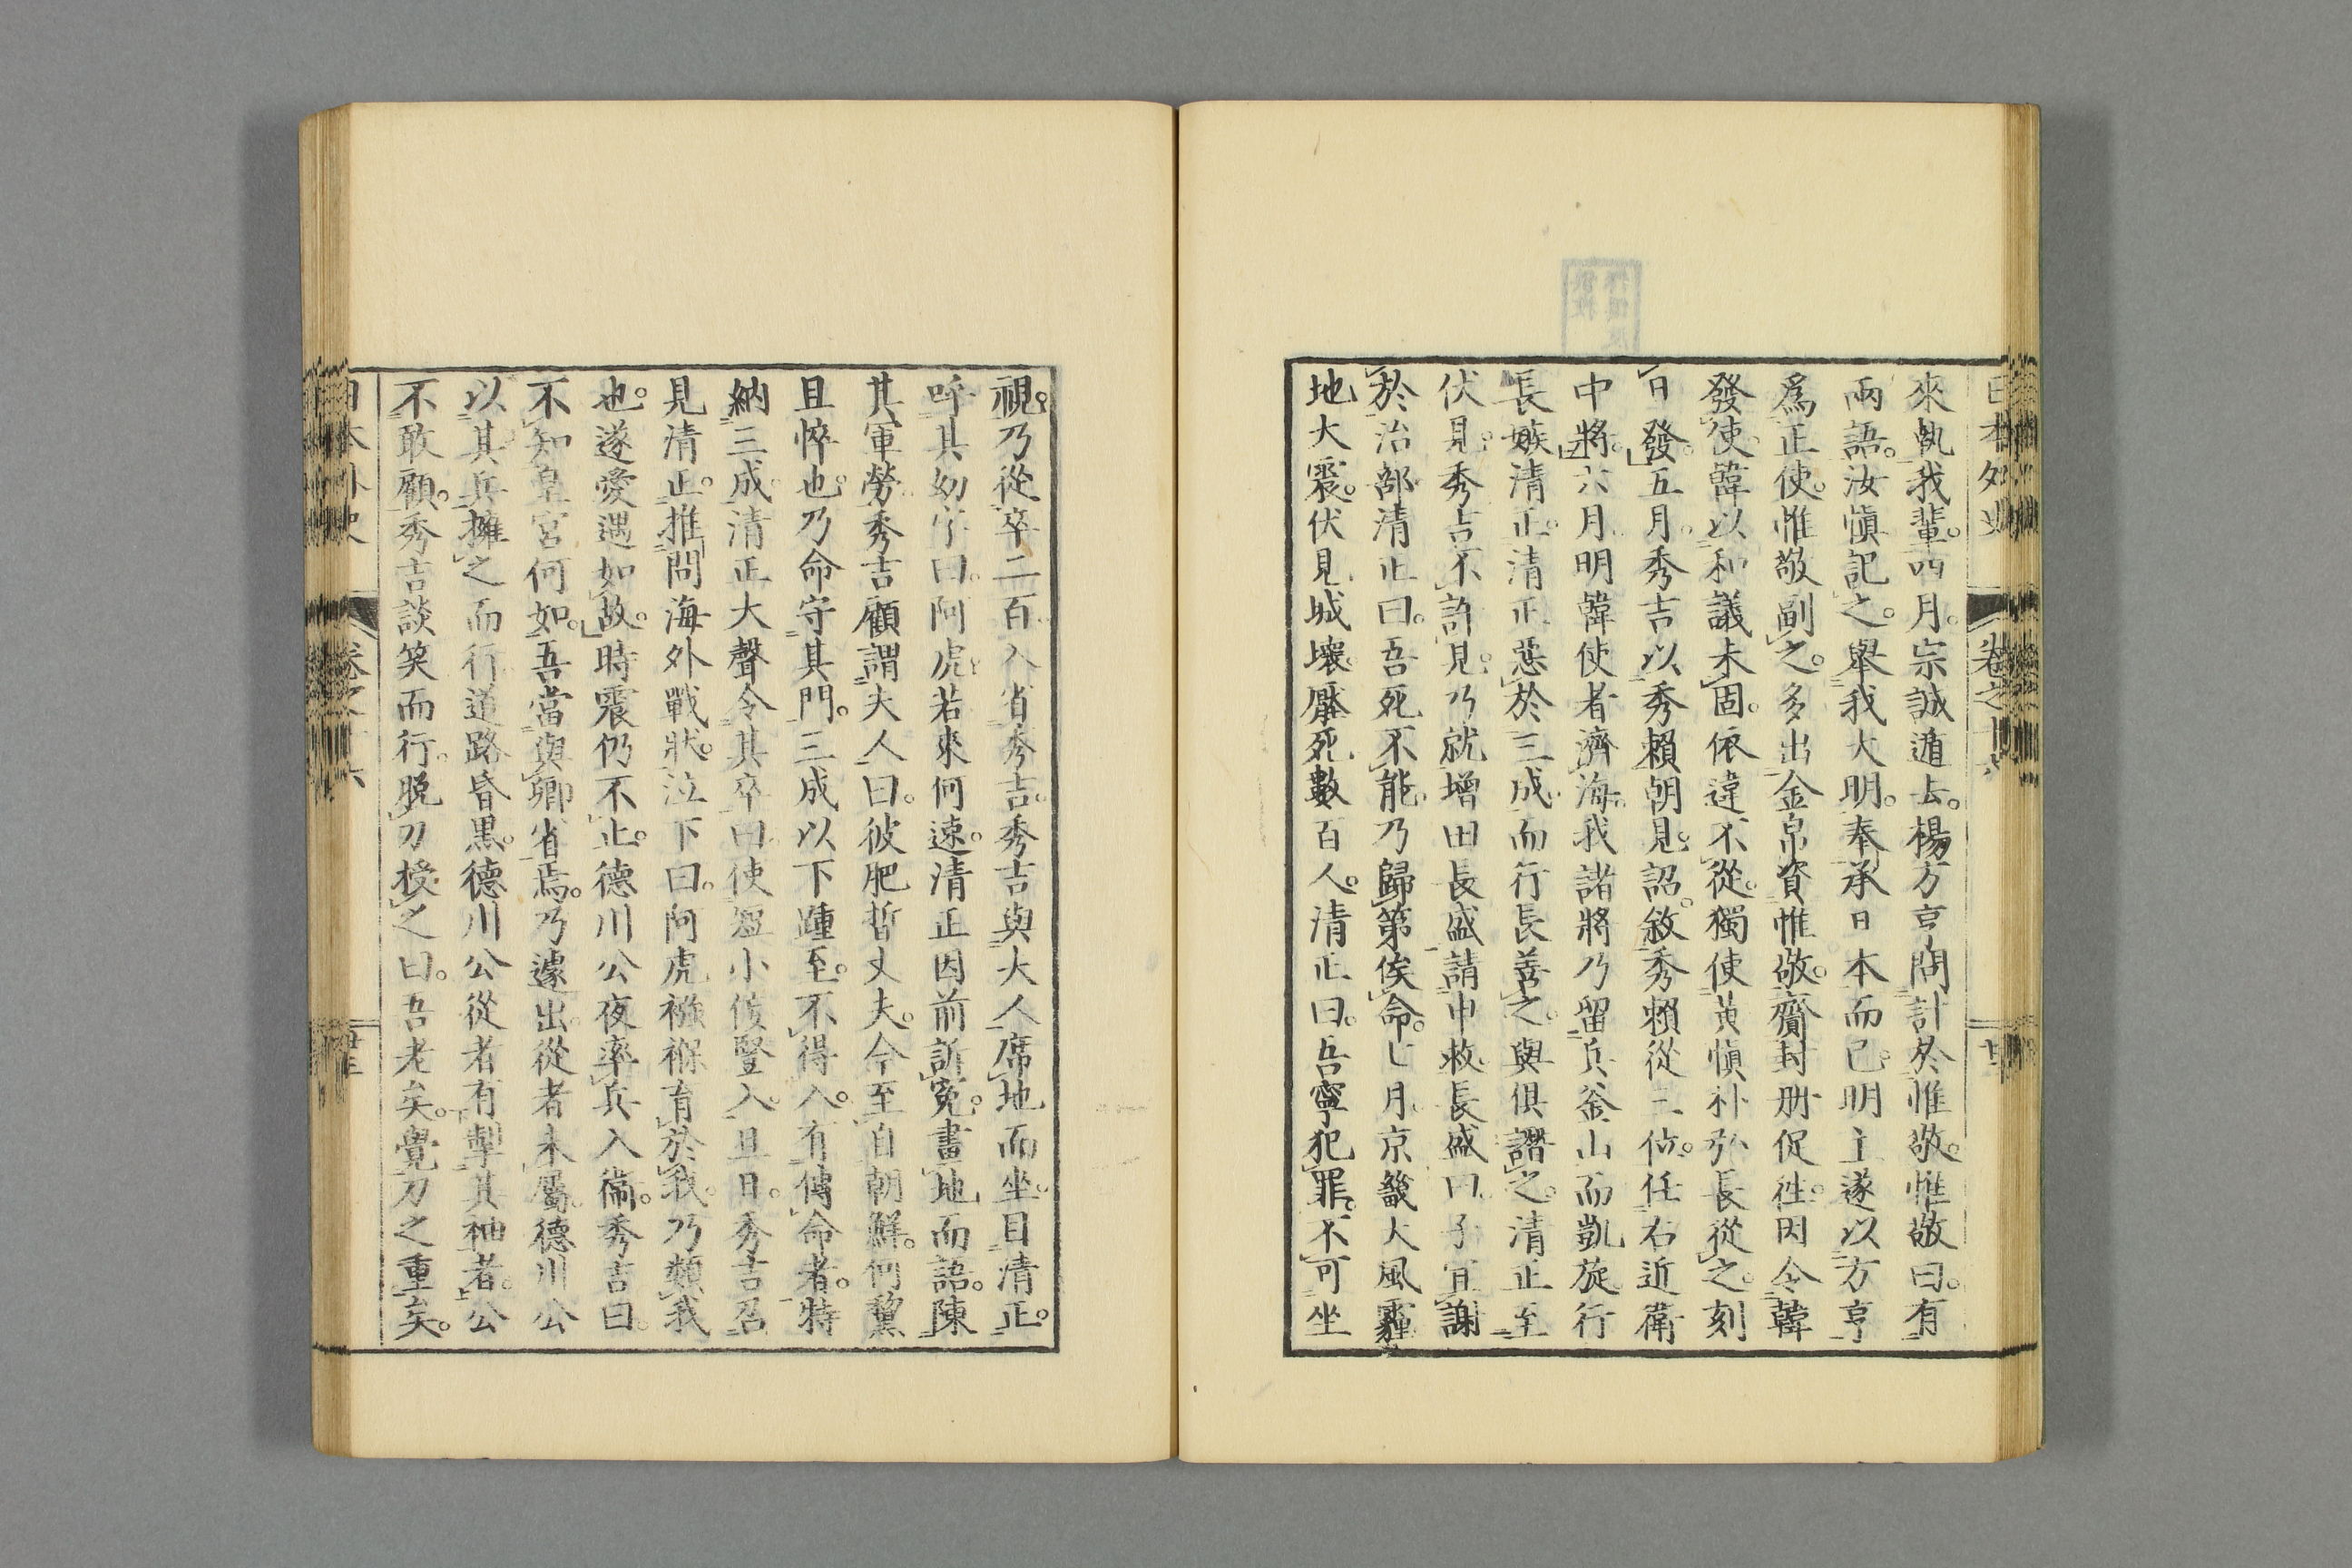 來執我輩。四月。宗誠遁去。楊方亨問計於惟敬。惟敬曰。有
兩語。汝愼記之。舉我大明。奉承日本而已。明主遂以方亨
爲正使。惟敬副之。多出金帛資惟敬。齎封册促往。因令韓
發使。韓以和議未固。依違不從。獨使黄愼朴弘長從之。刻
日發。五月。秀吉以秀賴朝見。詔敘秀賴從三位。任右近衞
中將。六月。明韓使者濟海。我諸將乃留兵釜山而凱旋。行
長嫉清正。清正惡於三成。而行長善之。與俱譖之。清正至
伏見。秀吉不許見。乃就增田長盛請申救。長盛曰。子宜謝
於治部。清正曰。吾死不能。乃歸第俟命。七月。京畿大風霾。
地大震。伏見城壞。壓死數百人。清正曰。吾寧犯罪。不可坐
視。乃從卒二百入省秀吉。秀吉與大人席地而坐。目清正。
呼其幼字曰。阿虎。若來何速。清正因前訴冤。畫地而語。陳
其軍勞。秀吉顧謂夫人曰。彼肥晳丈夫。今至自朝鮮。何黧
且悴也。乃命守其門。三成以下踵至。不得入。有傳命者。特
納三成。清正大聲令其卒曰。使短小佞豎入。且日。秀吉召
見清正。推問海外戰狀。泣下曰。阿虎襁褓育於我。乃類我
也。遂愛遇如故。時震仍不止。德川公夜率兵入衞。秀吉曰。
不知皇宮何如。吾當與卿省焉。乃遽出。從者未屬。德川公
以其兵擁之而行。道路昏黒。德川公從者有掣其袖者。公
不敢顧。秀吉談笑而行。脱刀授之曰。吾老矣。覺刀之重矣。